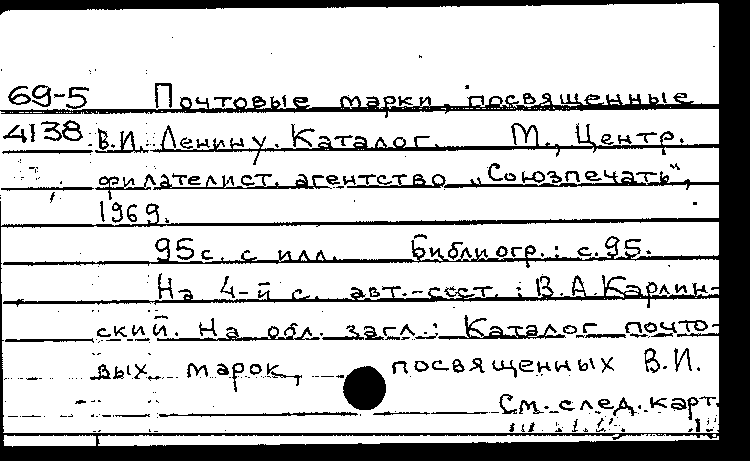 69-5 Почтовые марки, посвященные
4138 В.И. Ленину. Каталог. М., Центр.
филателист. агентство „Союзпечать",
1969.
95 с. с илл. Библиогр.: с. 95.
На 4-й с. авт.-сост.: В.А. Карлин-
ский. На обл. загл.: Каталог почто-
вых марок, посвященных В.И.
См. след. карт.